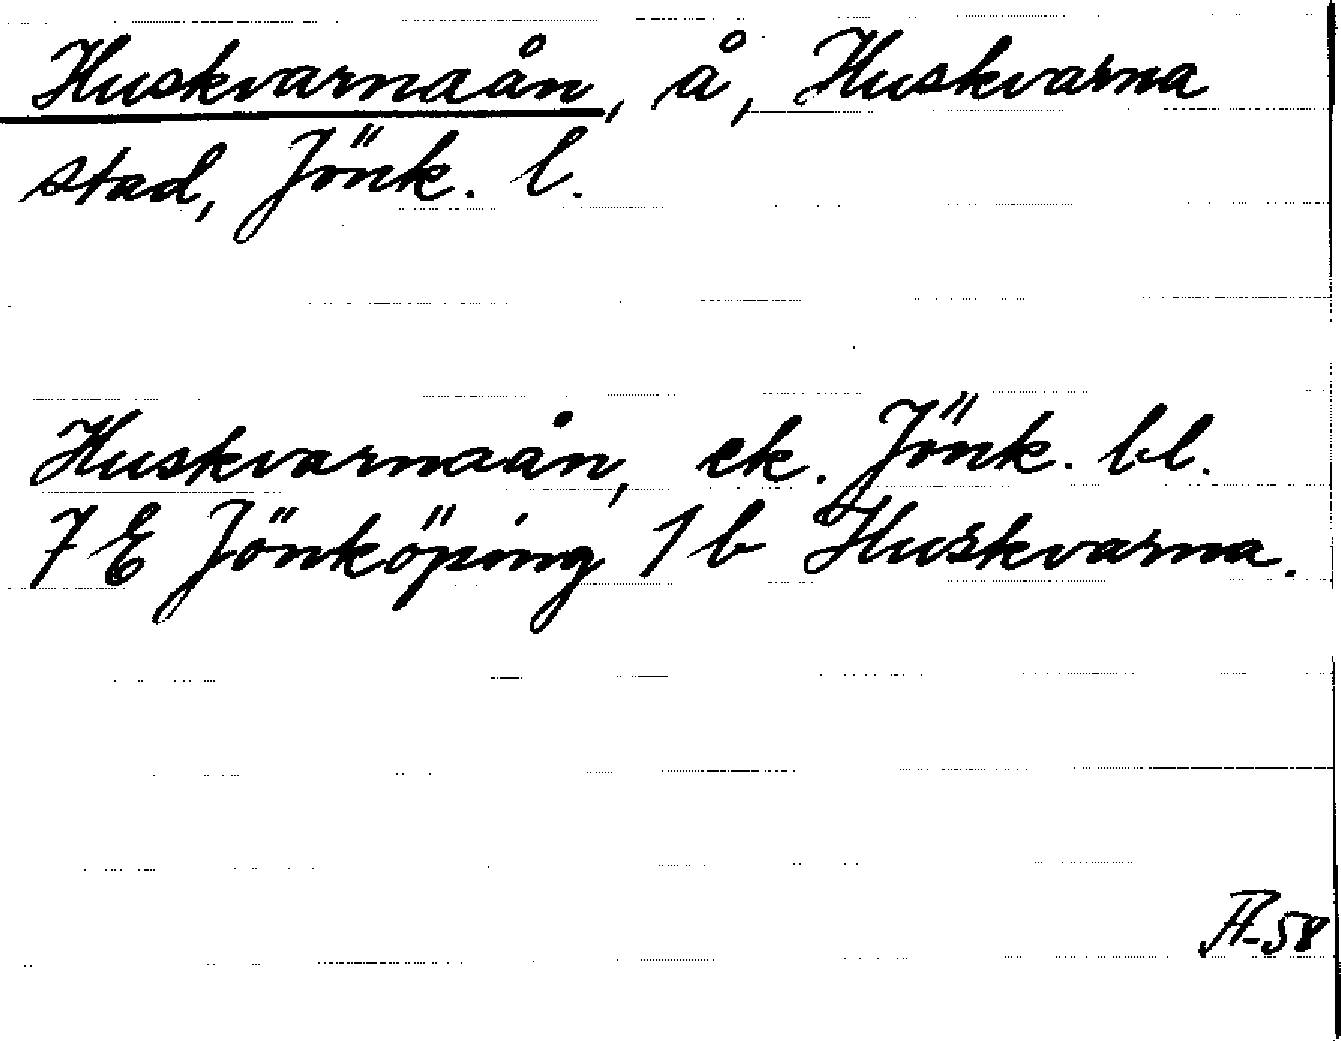 Huskvarnaån, å, Huskvarna
stad, Jönk. l.
Huskvarnaån, ek. Jönk. bl.
7 E Jönköping 1 b Huskvarna.
-58